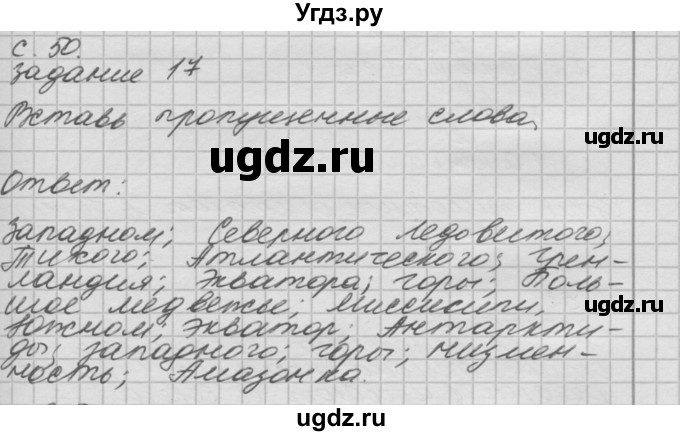 Угдз.ру
с. 50.
задание 17
Вставь пропущенные слова.
ugdz.ru
ugdz.ru
Ответ:
ugdz.ru
Западном; Северного Ледовитого;
Тихого; Атлантического; Грен-
ландия; Экватора; горы; Боль-
шое медвежье; Миссисипи.
Южном; Экватор; Антаркти-
ды; западного; горы; низмен-
ность; Амазонка.
ugdz.ru
ugdz.ru